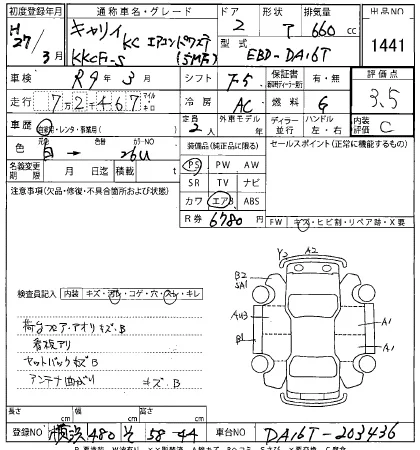 初度登録年月 通称車名・グレード ドア 形状 排気量 出品NO
H27/3月 キャリイ KC エアコン・パワステ 2 T 660 cc 1441
KKCF1-S (5MF) 型式 EBD-DA16T
車検 R9年3月 シフト F5 保証書 有・無 評価点
走行 72467 マイル キロ 冷房 AC 燃料 G 3.5
車歴 自家用・レンタ・事業用( ) 定員 2人 外車モデル 年 ディラー 並行 ハンドル 左・右 内装 評価 C
色 元色 白 → 色替 カラーNO 26U 装備品(純正品に限る) セールスポイント(正常に機能するもの)
名義変更期限 月 日迄 積載 t PS PW AW
注意事項(欠品・修復・不具合箇所および状態) SR TV ナビ
カワ エアB ABS
R券 6780円 FW キズ・ヒビ割・リペア跡・X要
検査員記入 内装 キズ・汚レ・コゲ・穴・スレ・キレ
荷台フロア・アオリキズB
看板アリ
ヤットバックキズB
アンテナ曲がり キズB
Y2 A2
B2
SA1
AU3 A1
B1 A1
長さ cm 幅 cm 高さ cm
登録NO 横浜 480 そ 58-44 車台NO DA16T-203436